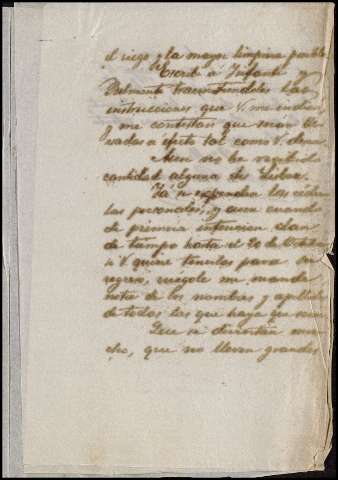 el riego y la mayor limpieza posible
Escribí á Infante y
trasmitiendoles las
instrucciones que V. me indica
y me contestan que serán lle-
vadas á efecto tal como V. desea
Aun no he recibido
cantidad alguna de
Ya se expenden las cédu-
las personales, y aun cuando
de primera intencion dan
de tiempo hasta el 20 de Octubre
si V. quiere tenerlas para su
regreso, ruégole me mande
nota de los nombres y apellidos
de todos los que haya que sacar
Que se diviertan mu-
cho, que no lleven grandes